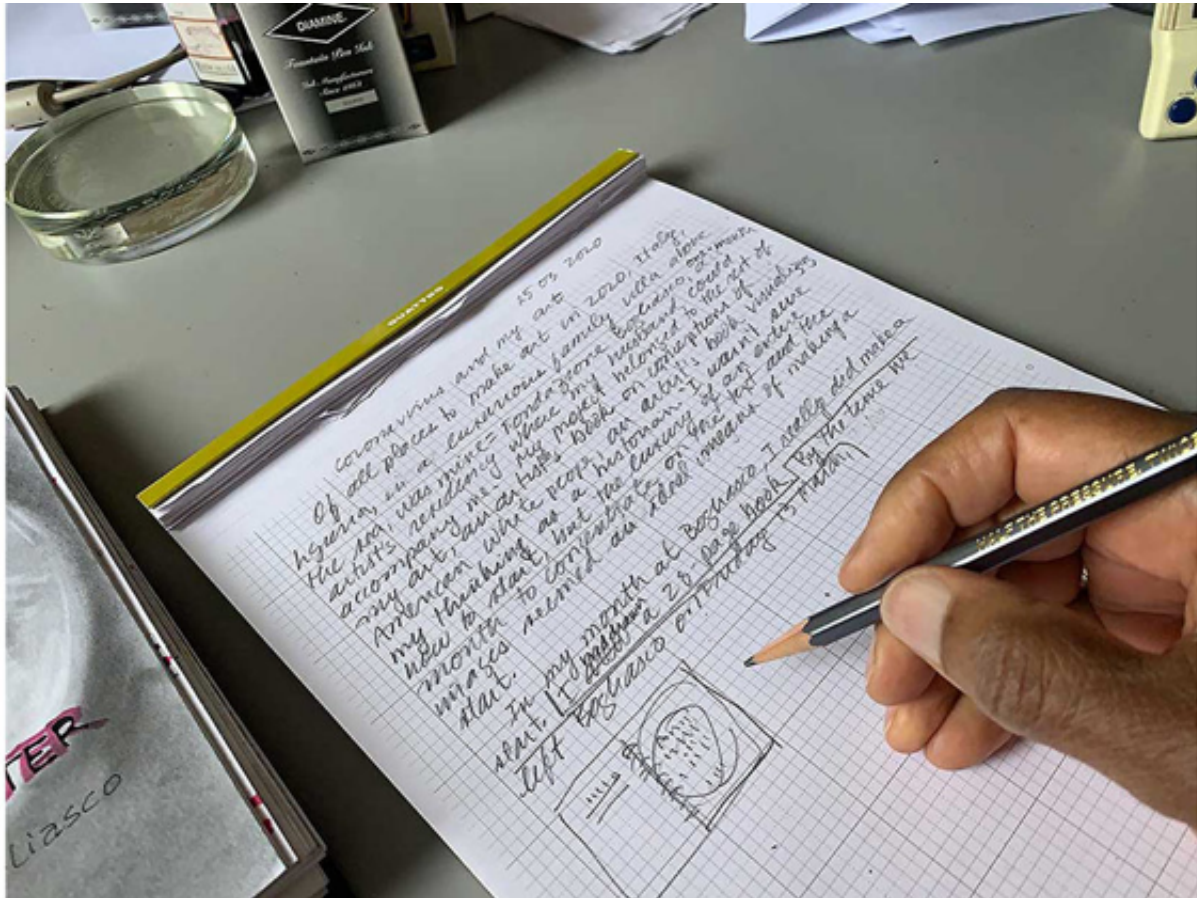 DIAMINE.
Fountain Pen Ink
Ink Manufacturers
Since 1864
QUATTRO
25 03 2020
coronavirus and my art
Of all places to make art in 2020, Italy,
Liguria, in a luxurious family villa above
the sea, was mine = Fondazione Bogliasco, a one-month
artist's residency where my husband could
accompany me. My project belonged to the rest of
my art, an artist's book on conceptions of
American white people, an artist's book visualizing
my thinking as a historian. I wasn't sure
how to start, but the luxury of an entire
month to concentrate on the text and the
images seemed an ideal means of making a
start.
In my month at Bogliasco, I really did make a
start. I a 28-page book. By the time we
left Bogliasco on Friday 13 March,
HALF THE PRESSURE, TWICE
TER
LIASCO